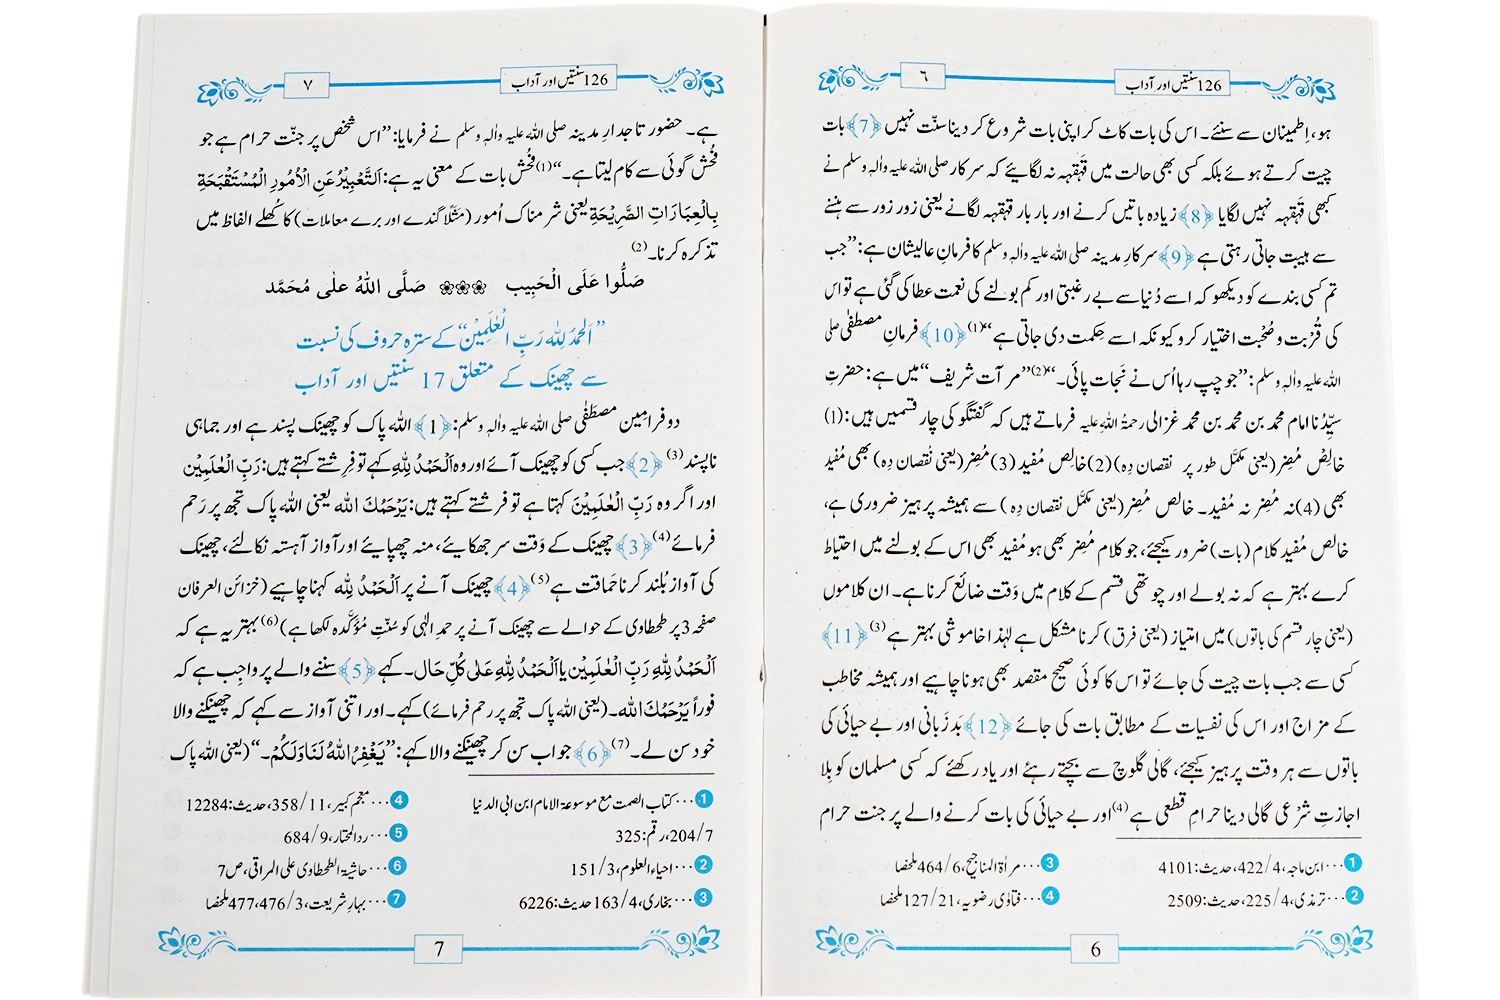 126 سنتیں اور آداب
٦
ہو، اِطمینان سے سنئے۔ اس کی بات کاٹ کر اپنی بات شروع کر دینا سنّت نہیں ﴿7﴾ بات
چیت کرتے ہوئے بلکہ کسی بھی حالت میں قَہقہہ نہ لگایئے کہ سرکار صلی اللہ علیہ واٰلہٖ وسلم نے
کبھی قَہقہہ نہیں لگایا ﴿8﴾ زیادہ باتیں کرنے اور بار بار قہقہہ لگانے یعنی زور زور سے ہنسنے
سے ہیبت جاتی رہتی ہے ﴿9﴾ سرکارِ مدینہ صلی اللہ علیہ واٰلہٖ وسلم کا فرمانِ عالیشان ہے: ”جب
تم کسی بندے کو دیکھو کہ اسے دُنیا سے بے رغبتی اور کم بولنے کی نعمت عطا کی گئی ہے تو اس
کی قُربت و صُحبت اختیار کرو کیونکہ اسے حِکمت دی جاتی ہے“(1) ﴿10﴾ فرمانِ مصطفٰی صلی
اللہ علیہ واٰلہٖ وسلم: ”جو چپ رہا اُس نے نَجات پائی۔“(2) ”مرآت شریف“ میں ہے: حضرتِ
سیِّدُنا امام محمد بن محمد بن محمد غزالی رحمۃُ اللہِ علیہ فرماتے ہیں کہ گفتگو کی چار قسمیں ہیں: (1)
خالِص مُضِر (یعنی مکمَّل طور پر نقصان دِہ) (2) خالِص مُفید (3) مُضِر (یعنی نقصان دِہ) بھی مُفید
بھی (4) نہ مُضِر نہ مُفید۔ خالص مُضِر (یعنی مکمَّل نقصان دِہ) سے ہمیشہ پرہیز ضروری ہے،
خالص مفید کلام (بات) ضرور کیجئے، جو کلام مُضِر بھی ہو مُفید بھی اس کے بولنے میں احتیاط
کرے بہتر ہے کہ نہ بولے اور چوتھی قسم کے کلام میں وَقت ضائع کرنا ہے۔ ان کلاموں
(یعنی چار قسم کی باتوں) میں امتیاز (یعنی فرق) کرنا مشکل ہے لہٰذا خاموشی بہتر ہے(3) ﴿11﴾
کسی سے جب بات چیت کی جائے تو اس کا کوئی صحیح مقصد بھی ہونا چاہیے اور ہمیشہ مخاطب
کے مزاج اور اس کی نفسیات کے مطابق بات کی جائے ﴿12﴾ بَدزَبانی اور بے حیائی کی
باتوں سے ہر وقت پرہیز کیجئے، گالی گلوچ سے بچتے رہئے اور یاد رکھئے کہ کسی مسلمان کو بِلا
اجازتِ شَرعی گالی دینا حرامِ قطعی ہے(4) اور بے حیائی کی بات کرنے والے پر جنت حرام
1 ... ابن ماجہ، 4/422، حدیث: 4101
2 ... ترمذی، 4/225، حدیث: 2509
3 ... مراٰۃ المناجیح، 6/464 ملخصا
4 ... فتاوٰی رضویہ، 21/127 ملخصا
6
126 سنتیں اور آداب
٧
ہے۔ حضور تاجدارِ مدینہ صلی اللہ علیہ واٰلہٖ وسلم نے فرمایا: ”اس شخص پر جنّت حرام ہے جو
فُحش گوئی سے کام لیتا ہے۔“(1) فُحش بات کے معنی یہ ہے: اَلتَّعْبِیْرُ عَنِ الْاُمُوْرِ الْمُسْتَقْبَحَةِ
بِالْعِبَارَاتِ الصَّرِیْحَةِ یعنی شرمناک اُمور (مَثَلًا گندے اور برے معاملات) کا کُھلے الفاظ میں
تذکرہ کرنا۔(2)
صَلُّوا عَلَی الْحَبِیب ❀❀❀ صَلَّی اللهُ عَلٰی مُحَمَّد
”اَلحمدُ لِلّٰہ رَبِّ الْعٰلَمِیْن“ کے سترہ حروف کی نسبت
سے چھینک کے متعلق 17 سنتیں اور آداب
دو فرامین مصطَفٰی صلی اللہ علیہ واٰلہٖ وسلم: ﴿1﴾ اللہ پاک کو چھینک پسند ہے اور جماہی
ناپسند(3) ﴿2﴾ جب کسی کو چھینک آئے اور وہ اَلْحَمْدُ لِلّٰہِ کہے تو فِرِشتے کہتے ہیں: رَبِّ الْعٰلَمِیْن
اور اگر وہ رَبِّ الْعٰلَمِیْنَ کہتا ہے تو فرشتے کہتے ہیں: یَرْحَمُكَ اللہ یعنی اللہ پاک تجھ پر رَحم
فرمائے(4) ﴿3﴾ چھینک کے وَقت سر جھکایئے، منہ چھپایئے اور آواز آہستہ نکالئے، چھینک
کی آواز بُلند کرنا حَماقت ہے(5) ﴿4﴾ چھینک آنے پر اَلْحَمْدُ لِلّٰہ کہنا چاہیے (خزائن العرفان
صفحہ 3 پر طحطاوی کے حوالے سے چھینک آنے پر حمدِ الٰہی کو سُنّتِ مُؤَکَّدہ لکھا ہے)(6) بہتر یہ ہے کہ
اَلْحَمْدُ لِلّٰہِ رَبِّ الْعٰلَمِیْن یا اَلْحَمْدُ لِلّٰہِ عَلٰی کُلِّ حَال۔ کہے ﴿5﴾ سننے والے پر واجِب ہے کہ
فوراً یَرْحَمُكَ اللہ۔ (یعنی اللہ پاک تجھ پر رحم فرمائے) کہے۔ اور اتنی آواز سے کہے کہ چھینکنے والا
خود سن لے۔(7) ﴿6﴾ جواب سن کر چھینکنے والا کہے: ”یَغْفِرُ اللہُ لَنَا وَلَکُمْ۔“ (یعنی اللہ پاک
1 ... کتاب الصمت مع موسوعۃ الامام ابن ابی الدنیا
7/204، رقم: 325
2 ... احیاء العلوم، 3/151
3 ... بخاری، 4/163 حدیث: 6226
4 ... معجم کبیر، 11/358، حدیث: 12284
5 ... ردالمحتار، 9/684
6 ... حاشیۃ الطحطاوی علی المراقی، ص 7
7 ... بہارِ شریعت، 3/476، 477 ملخصا
7